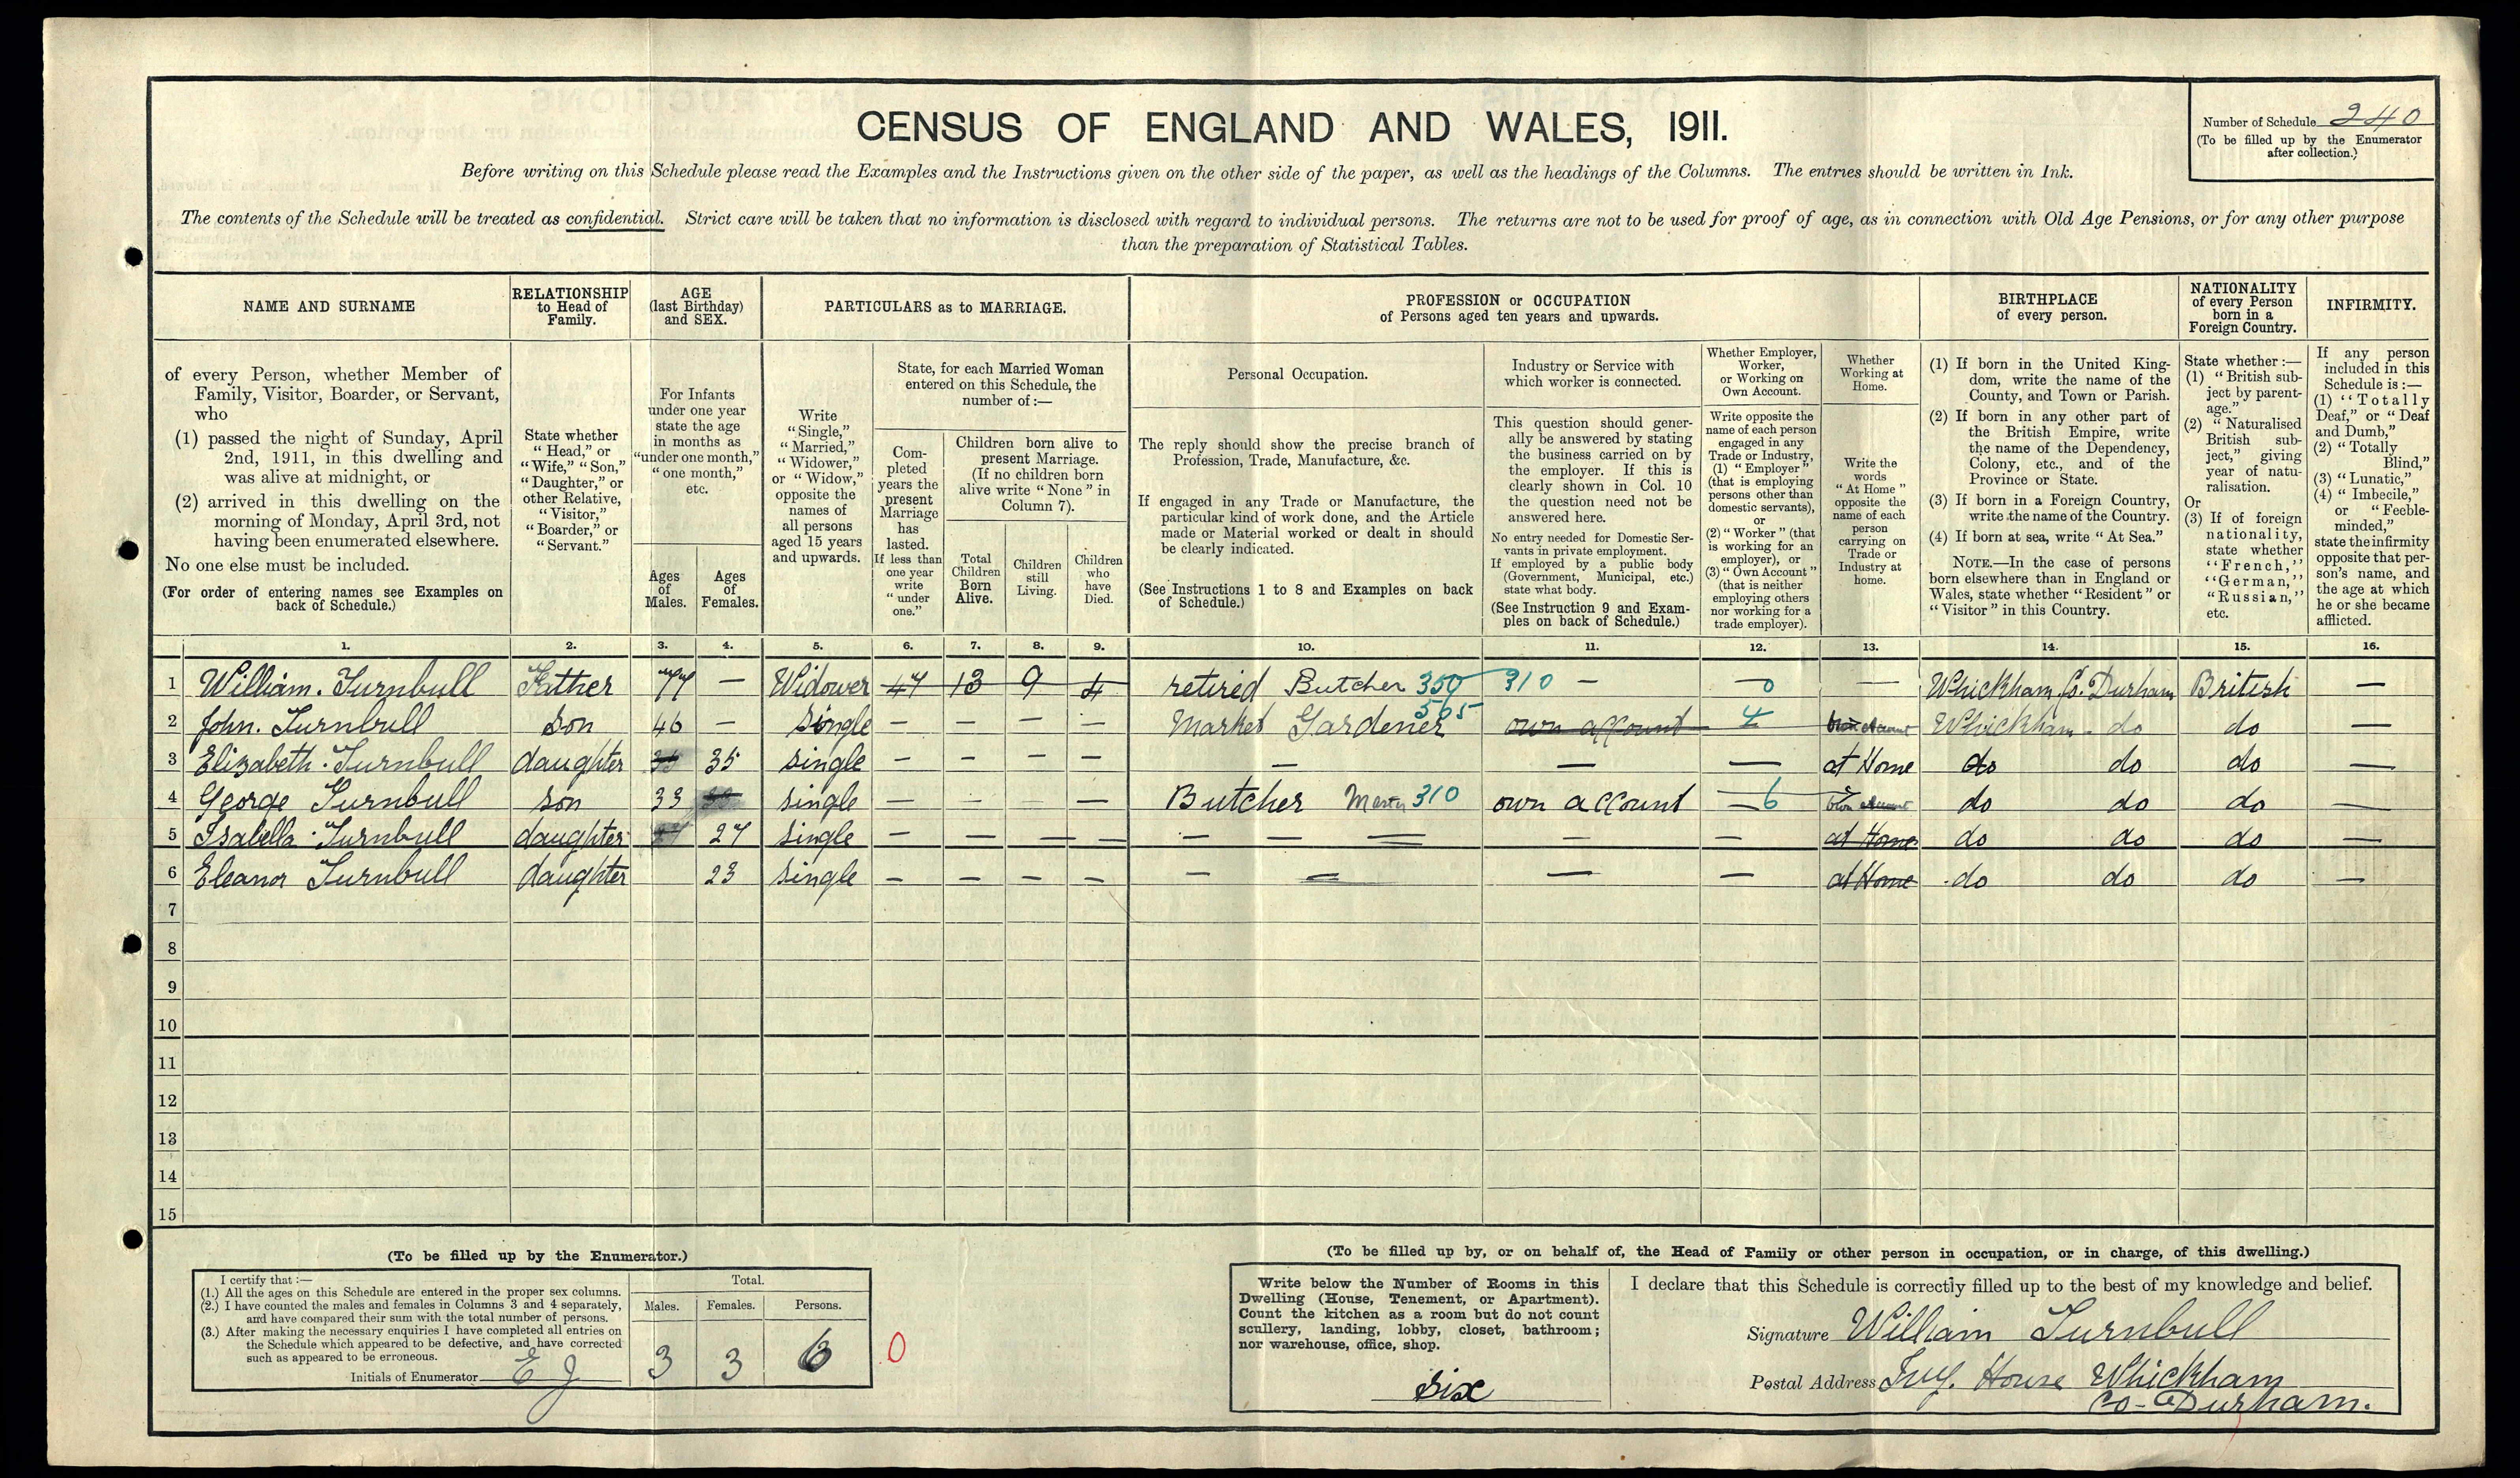 CENSUS OF ENGLAND AND WALES, 1911.
Number of Schedule 240
(To be filled up by the Enumerator
after collection.)
Before writing on this Schedule please read the Examples and the Instructions given on the other side of the paper, as well as the headings of the Columns. The entries should be written in Ink.
The contents of the Schedule will be treated as confidential. Strict care will be taken that no information is disclosed with regard to individual persons. The returns are not to be used for proof of age, as in connection with Old Age Pensions, or for any other purpose
than the preparation of Statistical Tables.
NAME AND SURNAME
of every Person, whether Member of
Family, Visitor, Boarder, or Servant,
who
(1) passed the night of Sunday, April
2nd, 1911, in this dwelling and
was alive at midnight, or
(2) arrived in this dwelling on the
morning of Monday, April 3rd, not
having been enumerated elsewhere.
No one else must be included.
(For order of entering names see Examples on
back of Schedule.)
RELATIONSHIP
to Head of
Family.
State whether
"Head," or
"Wife," "Son,"
"Daughter," or
other Relative,
"Visitor,"
"Boarder," or
"Servant."
AGE
(last Birthday)
and SEX.
For Infants
under one year
state the age
in months as
"under one month,"
"one month,"
etc.
Ages
of
Males.
Ages
of
Females.
PARTICULARS as to MARRIAGE.
Write
"Single,"
"Married,"
"Widower,"
or "Widow,"
opposite the
names of
all persons
aged 15 years
and upwards.
State, for each Married Woman
entered on this Schedule, the
number of :—
Com-
pleted
years the
present
Marriage
has
lasted.
If less than
one year
write
"under
one."
Children born alive to
present Marriage.
(If no children born
alive write "None" in
Column 7).
Total
Children
Born
Alive.
Children
still
Living.
Children
who
have
Died.
PROFESSION or OCCUPATION
of Persons aged ten years and upwards.
Personal Occupation.
The reply should show the precise branch of
Profession, Trade, Manufacture, &c.
If engaged in any Trade or Manufacture, the
particular kind of work done, and the Article
made or Material worked or dealt in should
be clearly indicated.
(See Instructions 1 to 8 and Examples on back
of Schedule.)
Industry or Service with
which worker is connected.
This question should gener-
ally be answered by stating
the business carried on by
the employer. If this is
clearly shown in Col. 10
the question need not be
answered here.
No entry needed for Domestic Ser-
vants in private employment.
If employed by a public body
(Government, Municipal, etc.)
state what body.
(See Instruction 9 and Exam-
ples on back of Schedule.)
Whether Employer,
Worker,
or Working on
Own Account.
Write opposite the
name of each person
engaged in any
Trade or Industry,
(1) "Employer"
(that is employing
persons other than
domestic servants),
or
(2) "Worker" (that
is working for an
employer), or
(3) "Own Account"
(that is neither
employing others
nor working for a
trade employer).
Whether
Working at
Home.
Write the
words
"At Home"
opposite the
name of each
person
carrying on
Trade or
Industry at
home.
BIRTHPLACE
of every person.
(1) If born in the United King-
dom, write the name of the
County, and Town or Parish.
(2) If born in any other part of
the British Empire, write
the name of the Dependency,
Colony, etc., and of the
Province or State.
(3) If born in a Foreign Country,
write the name of the Country.
(4) If born at sea, write "At Sea."
NOTE.—In the case of persons
born elsewhere than in England or
Wales, state whether "Resident" or
"Visitor" in this Country.
NATIONALITY
of every Person
born in a
Foreign Country.
State whether :—
(1) "British sub-
ject by parent-
age."
(2) "Naturalised
British sub-
ject," giving
year of natu-
ralisation.
Or
(3) If of foreign
nationality,
state whether
"French,"
"German,"
"Russian,"
etc.
INFIRMITY.
If any person
included in this
Schedule is :—
(1) "Totally
Deaf," or "Deaf
and Dumb,"
(2) "Totally
Blind,"
(3) "Lunatic,"
(4) "Imbecile,"
or "Feeble-
minded,"
state the infirmity
opposite that per-
son's name, and
the age at which
he or she became
afflicted.
1. 2. 3. 4. 5. 6. 7. 8. 9. 10. 11. 12. 13. 14. 15. 16.
1 William. Turnbull Father 77 — Widower 47 13 9 4 retired Butcher 350 310 — 0 — Whickham Co. Durham British —
2 John. Turnbull Son 46 — Single — — — — Market Gardener 505 own account 4 own Account Whickham do do —
3 Elizabeth. Turnbull daughter 35 35 single — — — — — — — at Home do do do —
4 George Turnbull son 33 single — — — — Butcher Master 310 own account — 6 own Account do do do —
5 Isabella Turnbull daughter 27 27 single — — — — — — — at Home do do do —
6 Eleanor Turnbull daughter 23 single — — — — — — — at Home do do do —
7
8
9
10
11
12
13
14
15
(To be filled up by the Enumerator.)
I certify that :—
(1.) All the ages on this Schedule are entered in the proper sex columns.
(2.) I have counted the males and females in Columns 3 and 4 separately,
and have compared their sum with the total number of persons.
(3.) After making the necessary enquiries I have completed all entries on
the Schedule which appeared to be defective, and have corrected
such as appeared to be erroneous.
Initials of Enumerator E J
Total.
Males. Females. Persons.
3 3 6 0
(To be filled up by, or on behalf of, the Head of Family or other person in occupation, or in charge, of this dwelling.)
Write below the Number of Rooms in this
Dwelling (House, Tenement, or Apartment).
Count the kitchen as a room but do not count
scullery, landing, lobby, closet, bathroom;
nor warehouse, office, shop.
six
I declare that this Schedule is correctly filled up to the best of my knowledge and belief.
Signature William Turnbull
Postal Address Ivy. House Whickham
Co-Durham.